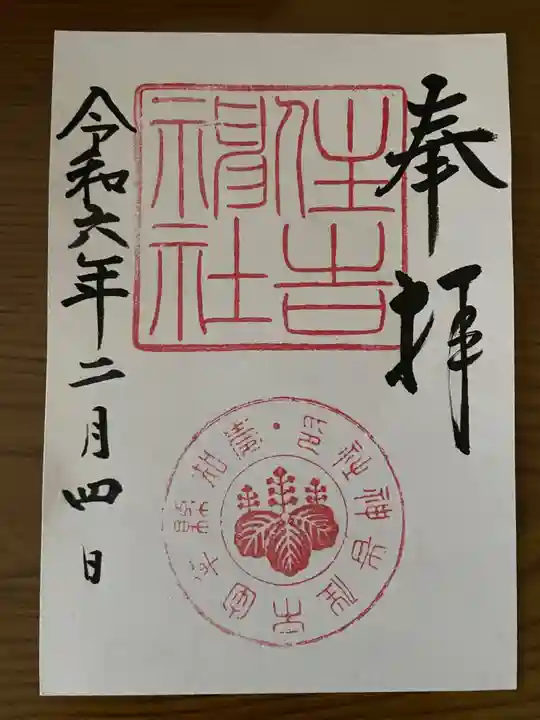 奉拝
住吉
神社
令和六年二月四日